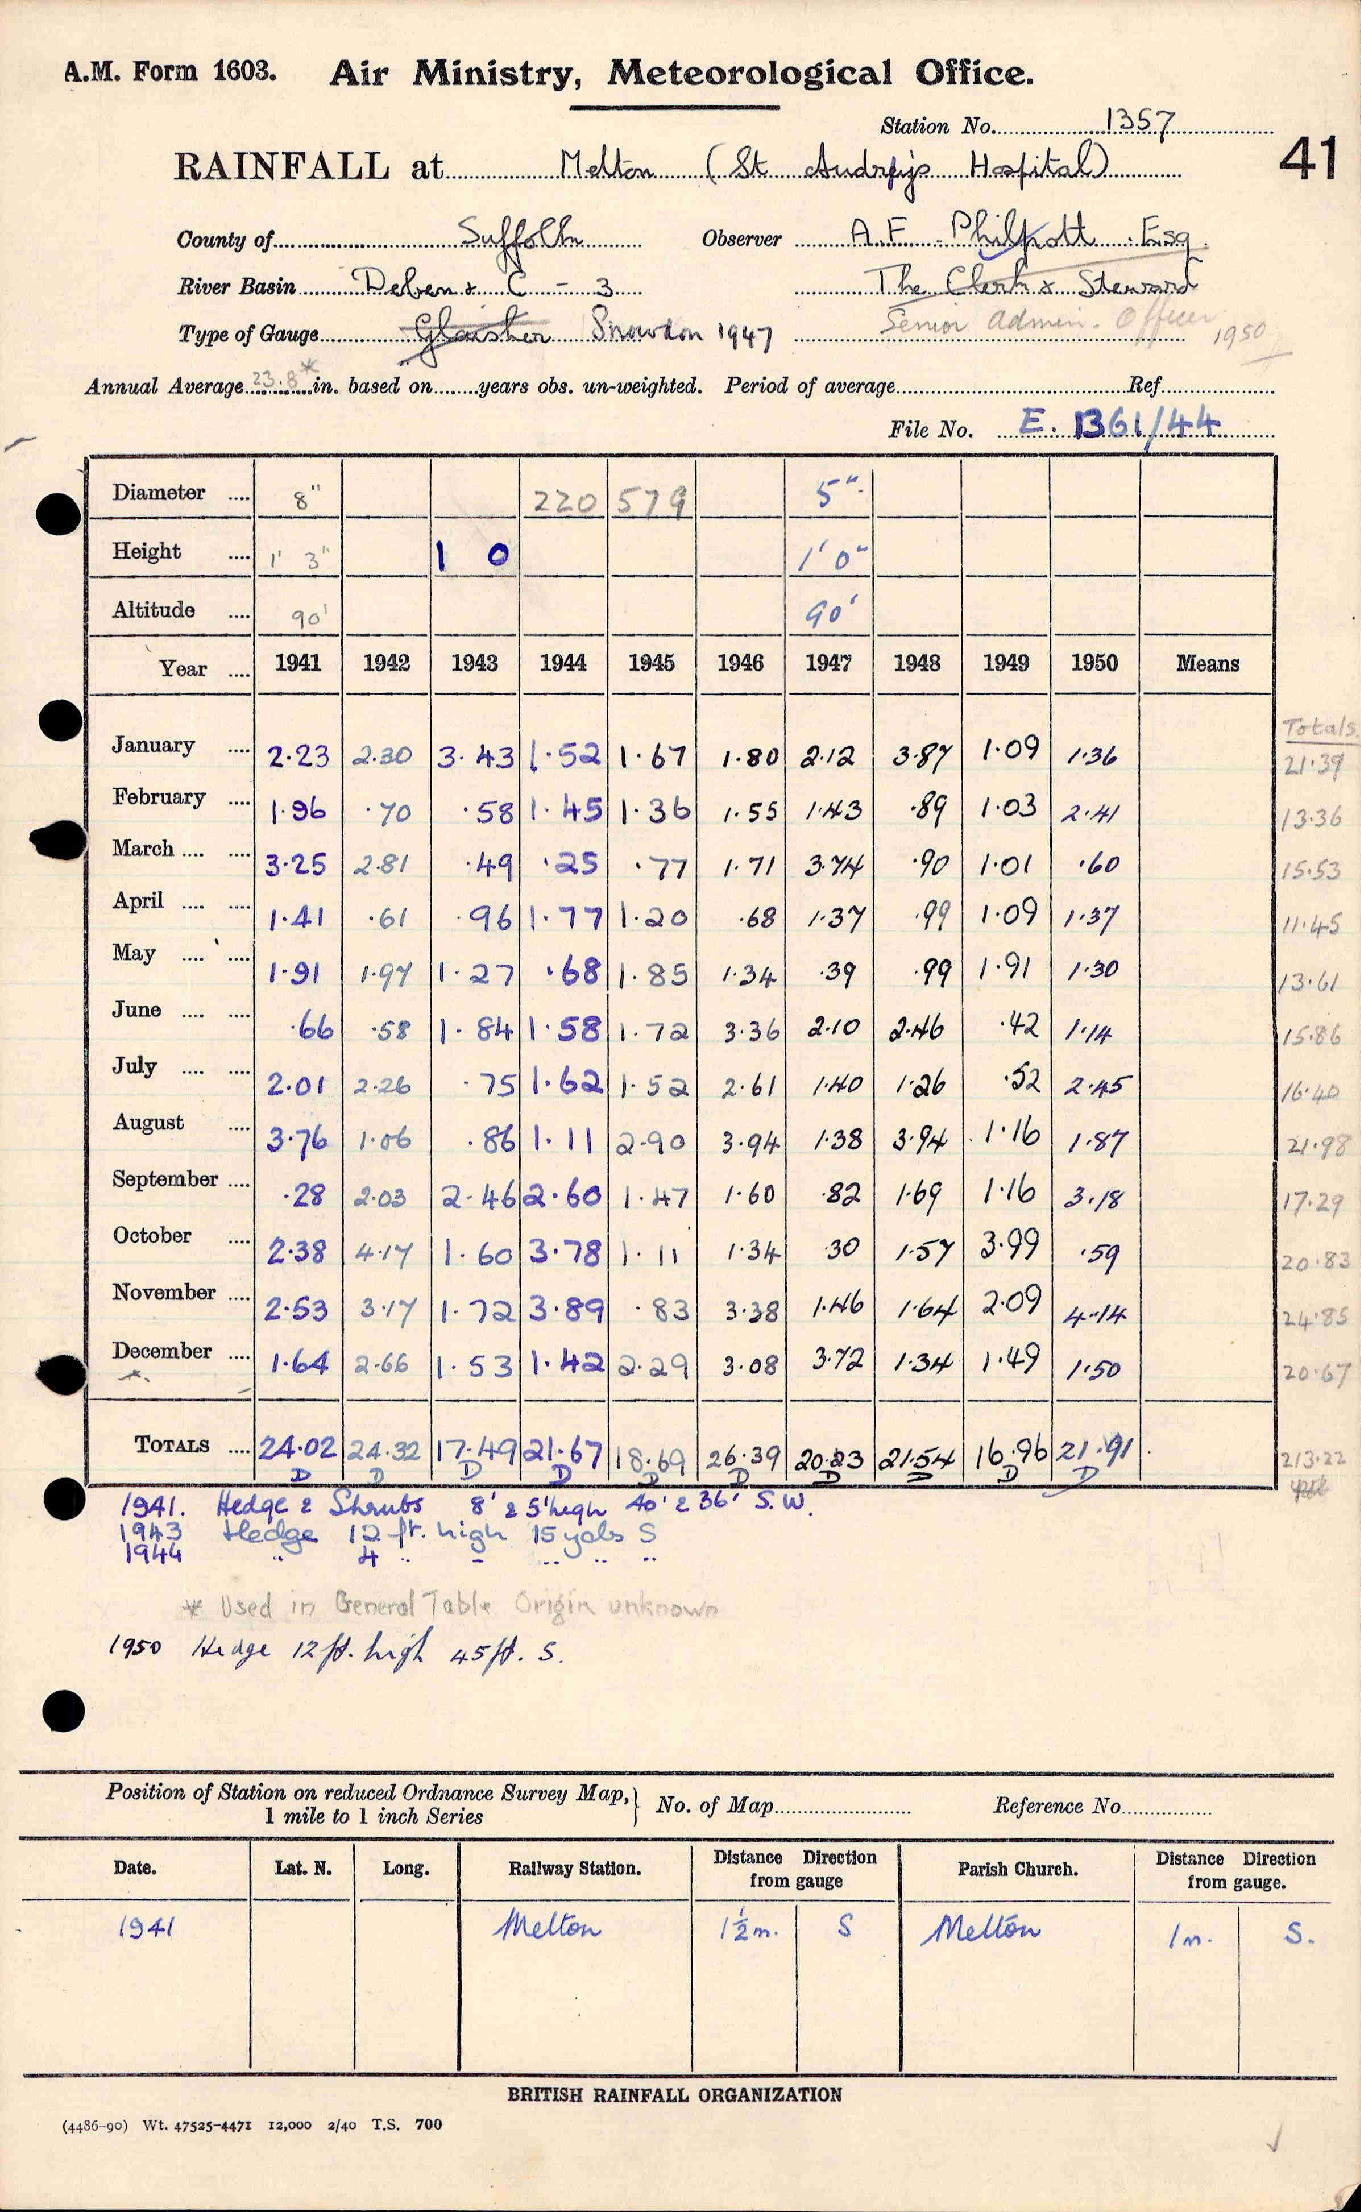 A.M. Form 1603. Air Ministry, Meteorological Office.
Station No. 1357
41
RAINFALL at Melton (St Audry's Hospital)
County of Suffolk Observer A.F. Philpott Esq.
River Basin Deben & C - 3 The Clerk & Steward
Type of Gauge Glaisher Snowdon 1947 Senior Admin. Officer 1950
Annual Average 23.8* in. based on years obs. un-weighted. Period of average Ref
File No. E. 1361/44
Diameter .... 8" 220 579 5"
Height .... 1' 3" 1 0 1' 0"
Altitude .... 90' 90'
Year .... 1941 1942 1943 1944 1945 1946 1947 1948 1949 1950 Means
Totals.
January .... 2.23 2.30 3.43 1.52 1.67 1.80 2.12 3.87 1.09 1.36 21.39
February .... 1.96 .70 .58 1.45 1.36 1.55 1.43 .89 1.03 2.41 13.36
March .... .... 3.25 2.81 .49 .25 .77 1.71 3.74 .90 1.01 .60 15.53
April .... .... 1.41 .61 .96 1.77 1.20 .68 1.37 .99 1.09 1.37 11.45
May .... .... 1.91 1.97 1.27 .68 1.85 1.34 .39 .99 1.91 1.30 13.61
June .... .... .66 .58 1.84 1.58 1.72 3.36 2.10 2.46 .42 1.14 15.86
July .... .... 2.01 2.26 .75 1.62 1.52 2.61 1.40 1.26 .52 2.45 16.40
August .... 3.76 1.06 .86 1.11 2.90 3.94 1.38 3.94 1.16 1.87 21.98
September .... .28 2.03 2.46 2.60 1.47 1.60 .82 1.69 1.16 3.18 17.29
October .... 2.38 4.17 1.60 3.78 1.11 1.34 .30 1.57 3.99 .59 20.83
November .... 2.53 3.17 1.72 3.89 .83 3.38 1.46 1.64 2.09 4.14 24.85
December .... 1.64 2.66 1.53 1.42 2.29 3.08 3.72 1.34 1.49 1.50 20.67
TOTALS .... 24.02 24.32 17.49 21.67 18.69 26.39 20.23 21.54 16.96 21.91 213.22
D D D D D D D D D D
1941. Hedge & Shrubs 8' & 5' high 40' & 36' S.W.
1943 Hedge 12 ft. high 15 yds S
1944 " 4 " " " " "
* Used in General Table Origin unknown
1950 Hedge 12 ft. high 45 ft. S.
Position of Station on reduced Ordnance Survey Map, } No. of Map Reference No.
1 mile to 1 inch Series
Date. Lat. N. Long. Railway Station. Distance Direction from gauge Parish Church. Distance Direction from gauge.
1941 Melton 1½ m. S Melton 1 m. S.
BRITISH RAINFALL ORGANIZATION
(4486-90) Wt. 47525-4471 12,000 2/40 T.S. 700